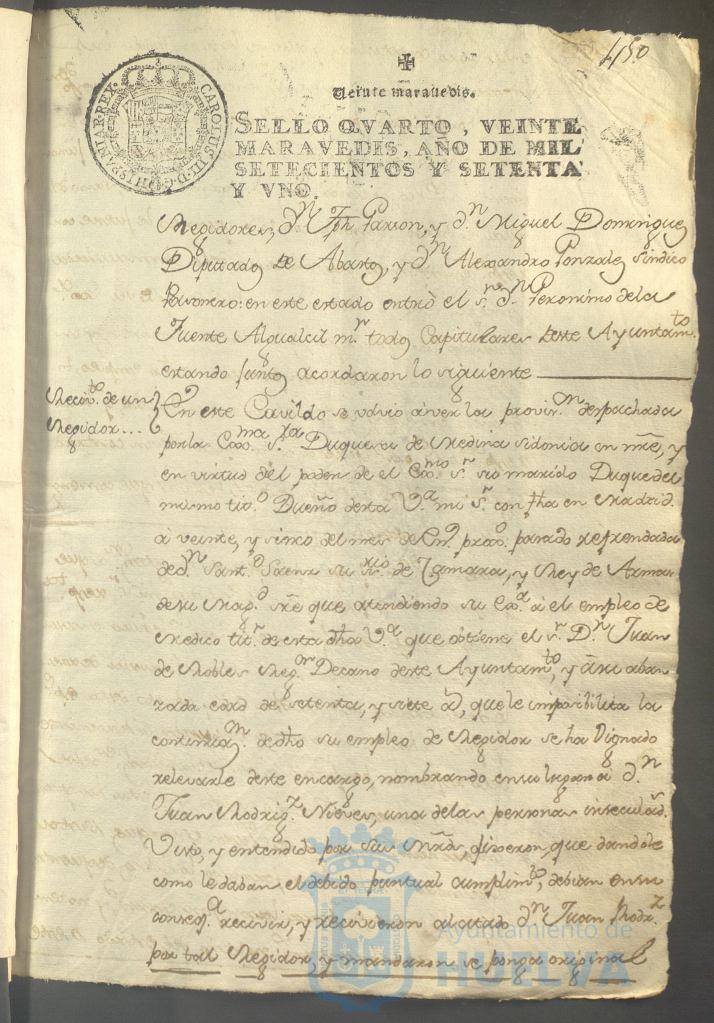 450
Veinte maravedis.
SELLO QVARTO, VEINTE
MARAVEDIS, AÑO DE MIL
SETECIENTOS Y SETENTA
Y VNO.
CAROLUS III D G HISPANIAR REX
Regidores, Dn Jph Garzon, y Dn Miguel Dominguez
Diputados de Abastos, y Dn Alexandro Gonzales Sindico
Personero: en este estado entró el sr Dn Geronimo dela
Fuente Alguacil mr todos Capitulares deste Ayuntamto
estando juntos acordaron lo siguiente
Recivto de un
Regidor...
En este Cavildo se volvio á ver la provin despachada
por la Exma sra Duquesa de Medina sidonia en nre, y
en virtud del poder de el Exmo sr su marido Duque del
mismo tito Dueño desta Va mi sr con fha en Madrid
á veinte, y sinco del mes de Eno proxo pasado refrendada
de Dn Santo Saenz su srio de Camara, y Rey de Armas
de su Magd sre que atendiendo su Exa á el empleo de
Medico titr de esta dha Va que obtiene el sr Dn Juan
de Robles Regor Decano deste Ayuntamto, y á su aban
zada edad de setenta, y siete ad, que le imposibilita la
continuazn de dho su empleo de Regidor se ha Dignado
relevarle deste encargo, nombrando en su lugar á Dn
Juan Rodrigz Nieves, una delas personas inseculads
Visto, y entendido por sus mrds, dixeron, que dandole
como le daban el debido puntual cumplimto, debian en su
conseqa recivir, y recivieron al citado Dn Juan Rodrz
por tal Regidor, y mandaron se ponga original
Ayuntamiento de
HUELVA